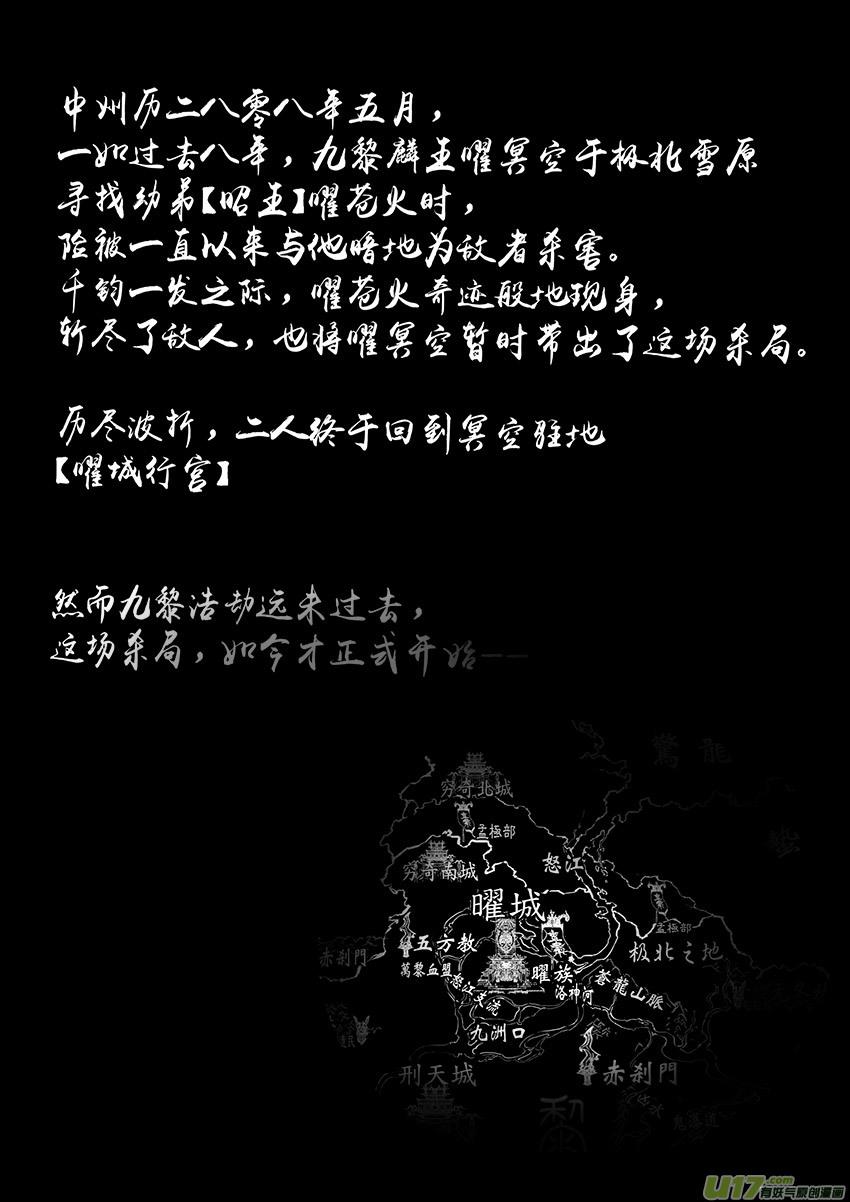 中州历二八零八年五月，
一如过去八年，九黎麟王曜冥空于极北雪原
寻找幼弟【昭王】曜苍火时，
险被一直以来与他暗地为敌者杀害。
千钧一发之际，曜苍火奇迹般地现身，
斩尽了敌人，也将曜冥空暂时带出了这场杀局。
历尽波折，二人终于回到冥空驻地
【曜城行宫】
然而九黎浩劫远未过去，
这场杀局，如今才正式开始——
驚龍
穷奇北城
孟極部
穷奇南城
怒江
曜城
孟極部
五方教
极北之地
赤刹門
萬黎血盟
曜族
怒江支流
洛神河
蒼龍山脈
九洲口
刑天城
赤刹門
黎
U17.com
有妖气原创漫画